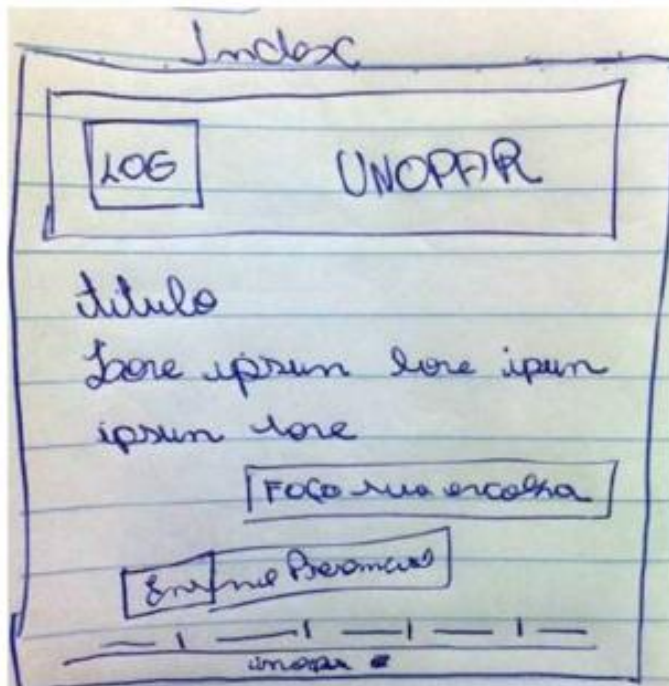 Index
LOG
UNOPAR
titulo
Lore ipsun lore ipun
ipsun lore
Faça sua escolha
unopar